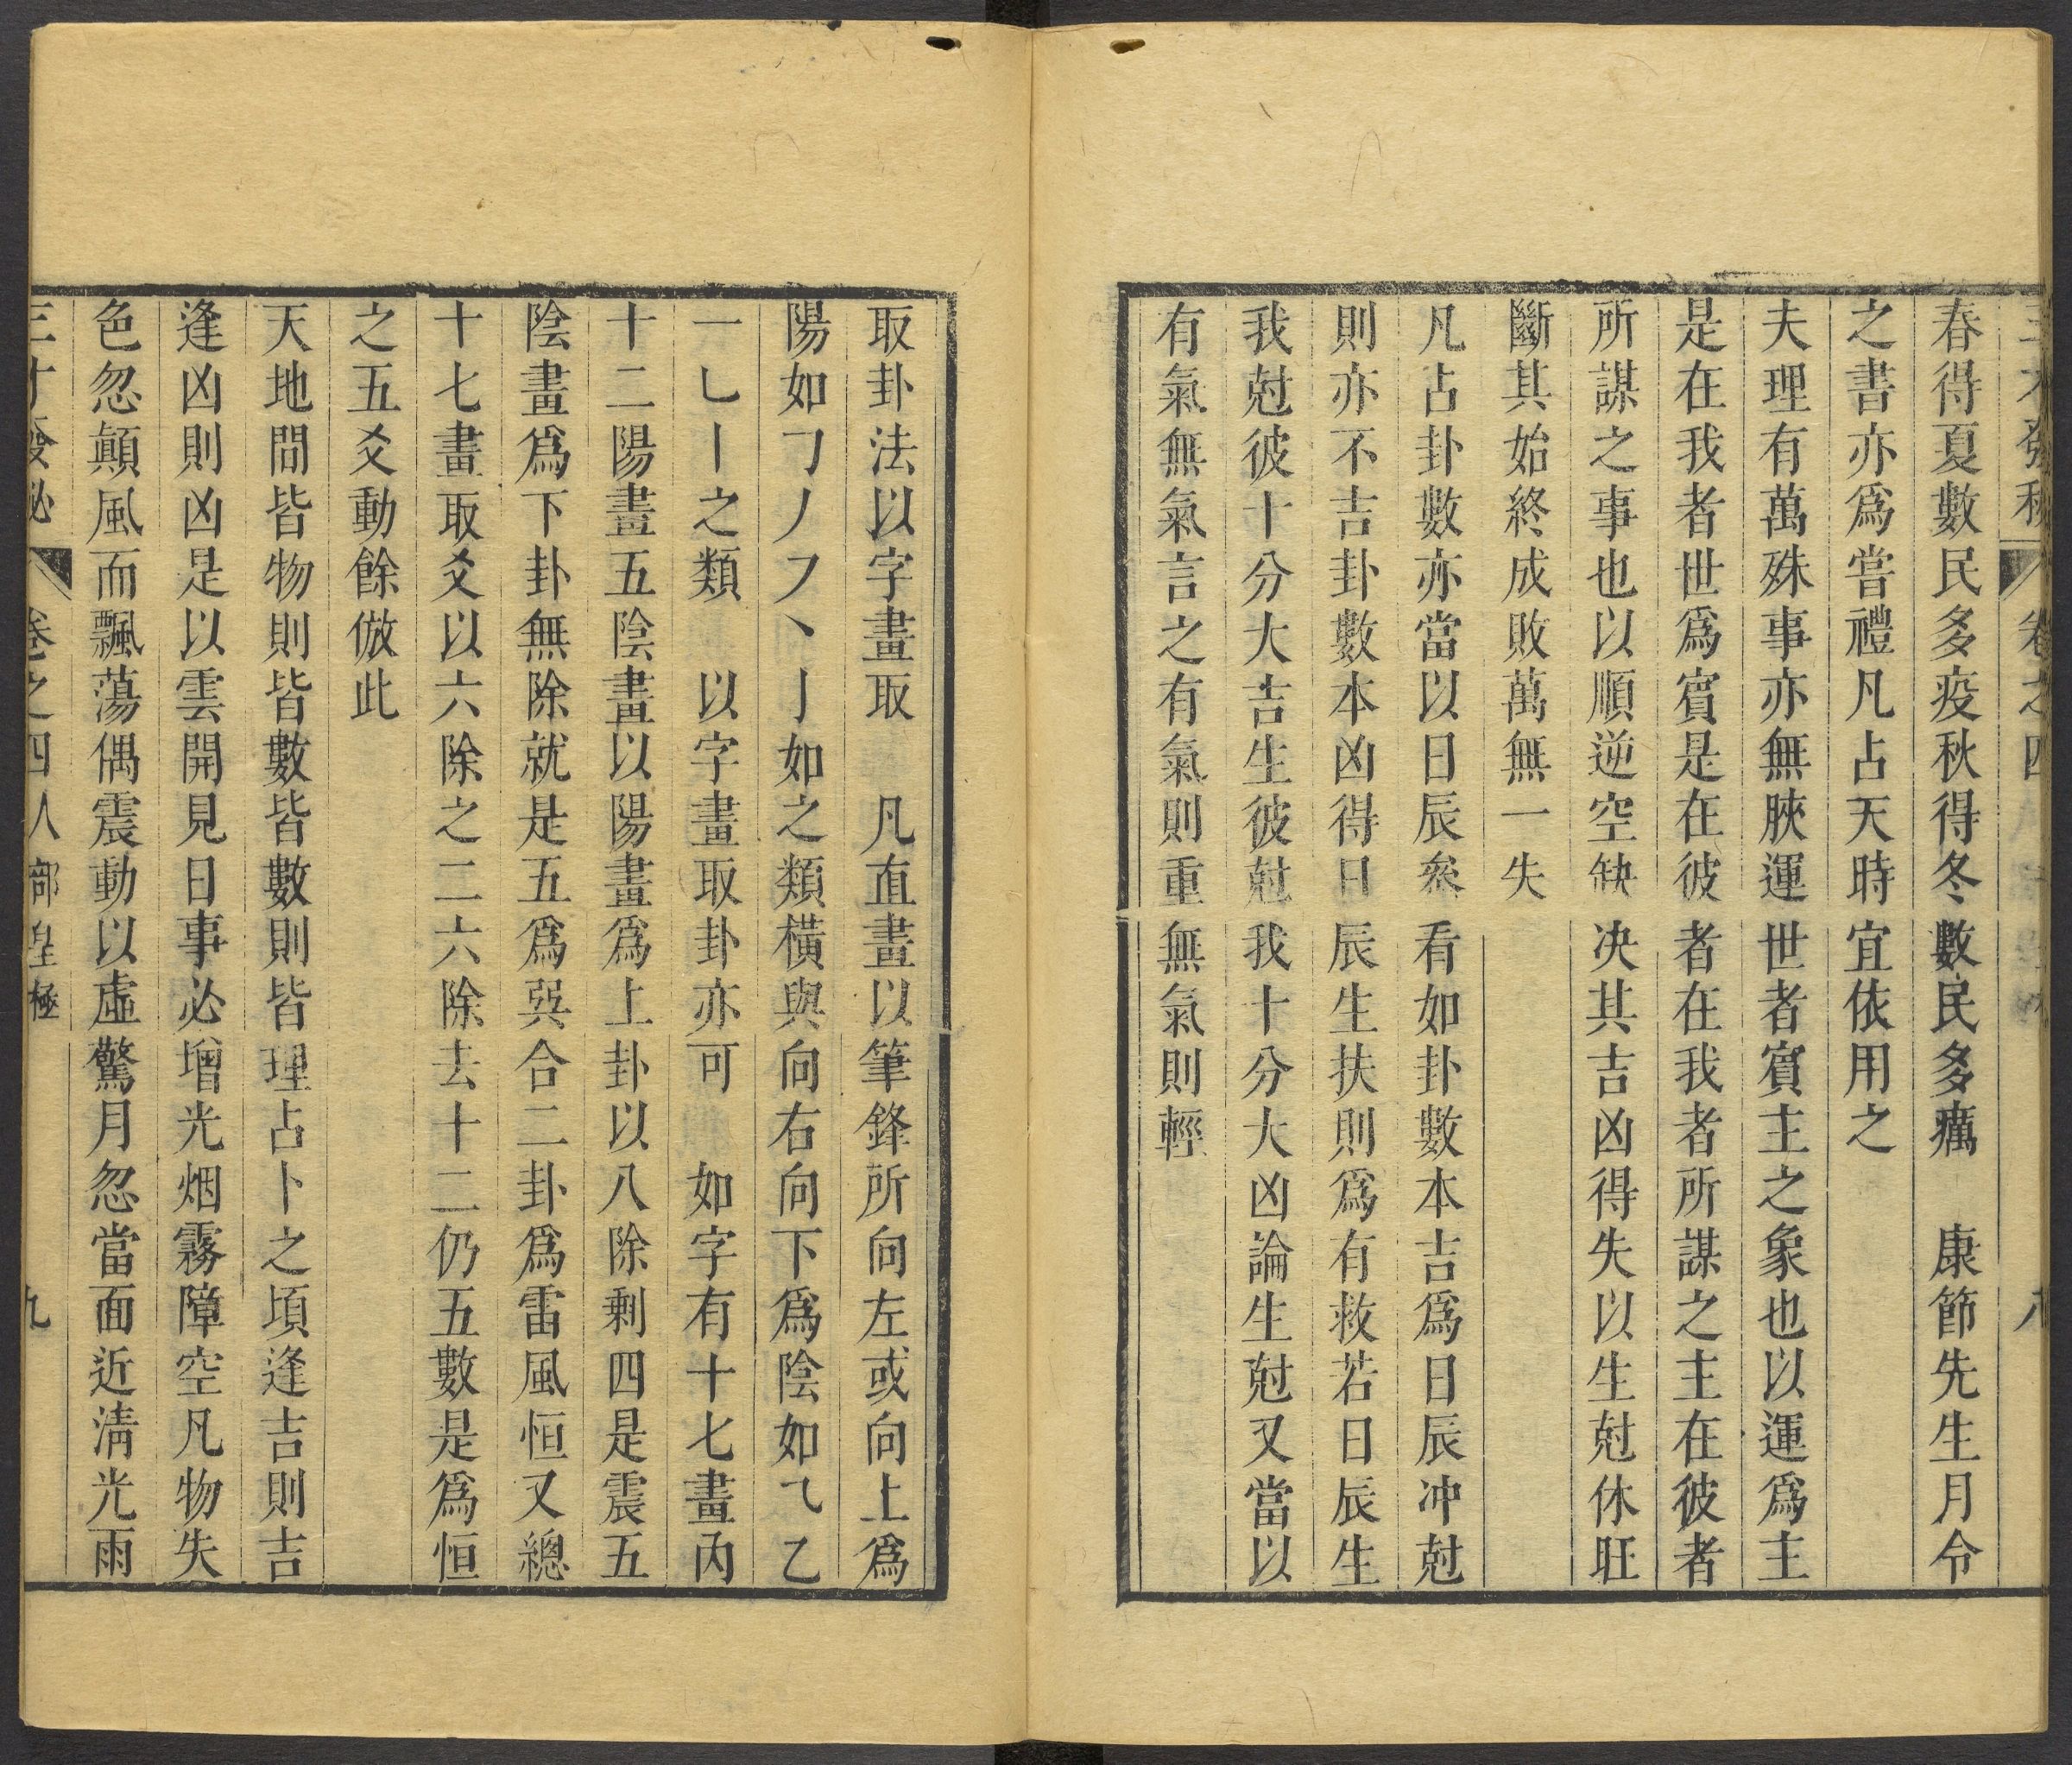 三才發秘 卷之四 八
春得夏數民多疫秋得冬數民多癘 康節先生月令
之書亦爲嘗禮凡占天時宜依用之
夫理有萬殊事亦無脥運世者賓主之象也以運爲主
是在我者世爲賓是在彼者在我者所謀之主在彼者
所謀之事也以順逆空缺决其吉凶得失以生尅休旺
斷其始終成敗萬無一失
凡占卦數亦當以日辰叅看如卦數本吉爲日辰冲尅
則亦不吉卦數本凶得日辰生扶則爲有救若日辰生
我尅彼十分大吉生彼尅我十分大凶論生尅又當以
有氣無氣言之有氣則重無氣則輕
取卦法以字畫取 凡直畫以筆鋒所向左或向上爲
陽如㇆丿㇇丶亅如之類橫與向右向下爲陰如⺄乙
一乚丨之類 以字畫取卦亦可 如字有十七畫內
十二陽畫五陰畫以陽畫爲上卦以八除剩四是震五
陰畫爲下卦無除就是五爲巽合二卦爲雷風恒又總
十七畫取爻以六除之二六除去十二仍五數是爲恒
之五爻動餘倣此
天地間皆物則皆數皆數則皆理占卜之頃逢吉則吉
逢凶則凶是以雲開見日事必增光烟霧障空凡物失
色忽顛風而飄蕩偶震動以虛驚月忽當面近淸光雨
三才發秘 卷之四人部皇極 九